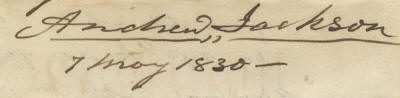 Andrew Jackson
7 May 1830 —